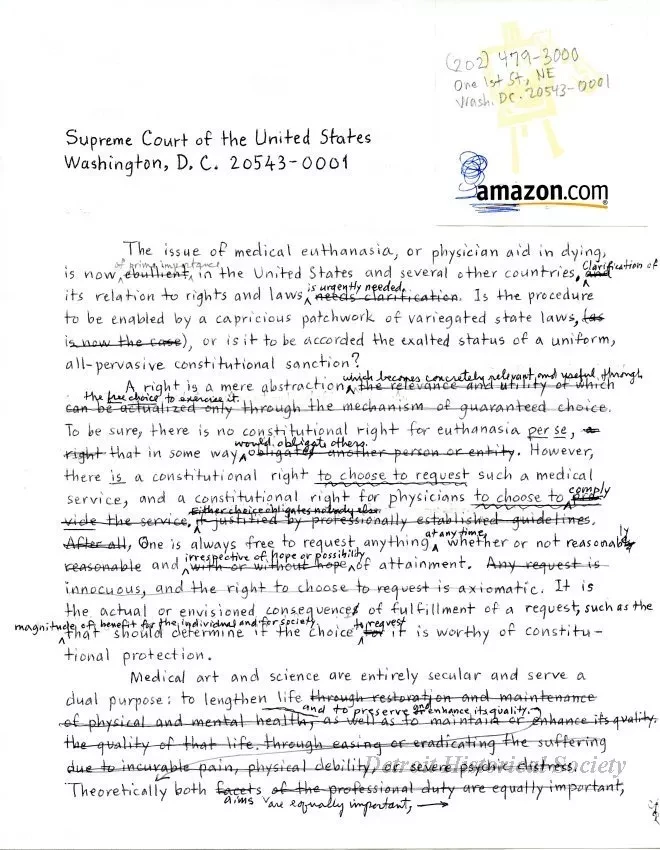 (202) 479-3000
One 1st St, NE
Wash. DC. 20543-0001
Supreme Court of the United States
Washington, D. C. 20543-0001
amazon.com
The issue of medical euthanasia, or physician aid in dying,
of prime importance
is now ebullient, in the United States and several other countries. and Clarification of
is urgently needed.
its relation to rights and laws needs clarification. Is the procedure
to be enabled by a capricious patchwork of variegated state laws, (as
is now the case), or is it to be accorded the exalted status of a uniform,
all-pervasive constitutional sanction?
which becomes concretely relevant and useful through
A right is a mere abstraction, the relevance and utility of which
the free choice to exercise it.
can be actualized only through the mechanism of guaranteed choice.
To be sure, there is no constitutional right for euthanasia per se, a
would obligate others.
right that in some way obligates another person or entity. However,
there is a constitutional right to choose to request such a medical
service, and a constitutional right for physicians to choose to pro comply
Either choice obligates nobody else.
vide the service, if justified by professionally established guidelines.
at any time,
After all, One is always free to request anything whether or not reasonably
irrespective of hope or possibility
reasonable and with or without hope of attainment. Any request is
innocuous, and the right to choose to request is axiomatic. It is
the actual or envisioned consequences of fulfillment of a request, such as the
magnitude of benefit for the individual and for society, to request
that should determine if the choice for it is worthy of constitu-
tional protection.
Medical art and science are entirely secular and serve a
dual purpose: to lengthen life through restoration and maintenance
and to preserve and enhance its quality.
of physical and mental health, as well as to maintain or enhance its quality.
the quality of that life through easing or eradicating the suffering
due to incurable pain, physical debility, or severe psychic distress.
Detroit Historical Society
Theoretically both facets of the professional duty are equally important,
aims are equally important,